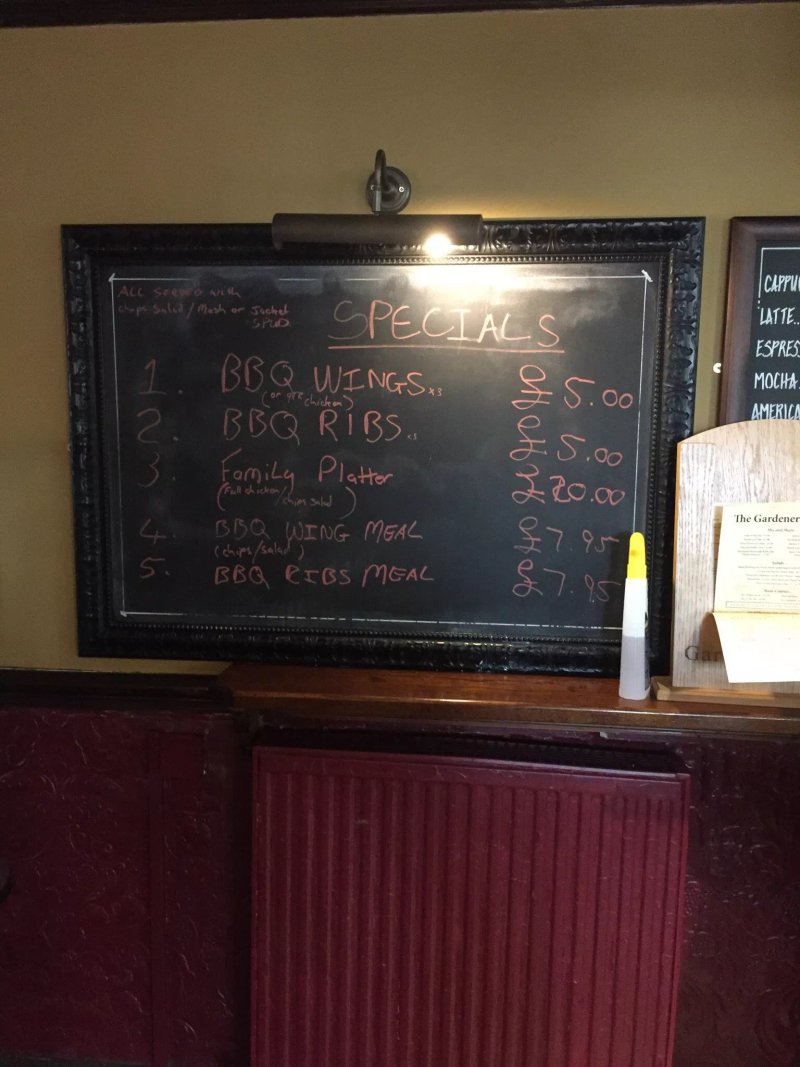 ALL SERVED with
chips Salad / Mash or Jacket
SPUD
SPECIALS
1. BBQ WINGS x3 £5.00
(or 1/4 chicken)
2. BBQ RIBS x3 £5.00
3. Family Platter £20.00
(Full chicken/chips salad)
4. BBQ WING MEAL £7.95
(chips/salad)
5. BBQ RIBS MEAL £7.95
CAPPU
LATTE..
ESPRES
MOCHA.
AMERICA
The Gardener
Gar